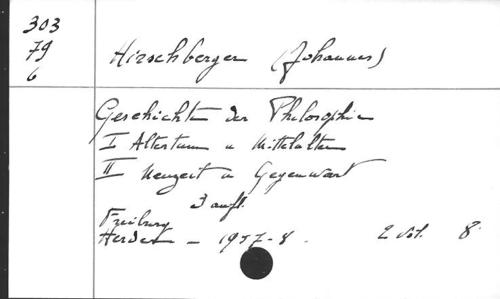 303
79
6
Hirschberger (Johannes)
Geschichte der Philosophie
I Altertum u Mittelalter
II Neuzeit u Gegenwart
3 aufl.
Freiburg
Herder – 1957-8. 2 vol. 8°